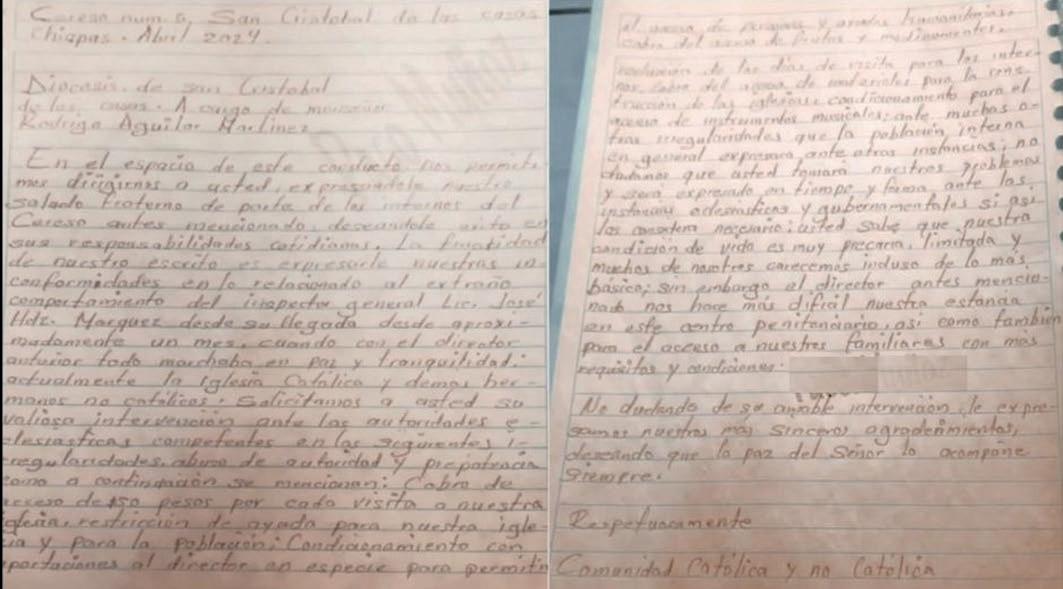 Cereso num. 5, San Cristobal de las casas
Chiapas. Abril 2024.
Diocesis. de san Cristobal
de las casas. A cargo de monseñor
Rodrigo Aguilar Martinez
En el espacio de este conducto nos permiti-
mos dirigirnos a usted, expresandole nuestro
saludo fraterno de parte de los internos del
Cereso antes mencionado, deseandole exito en
sus responsabilidades cotidianas. La finalidad
de nuestro escrito es expresarle nuestras in-
conformidades en lo relacionado al extraño
comportamiento del inspector general Lic. José
Hdz. Marquez desde su llegada desde aproxi-
madamente un mes, cuando con el director
anterior todo marchaba en paz y tranquilidad.
actualmente la iglesia Catolica y demas her-
manos no catolicos. Solicitamos a usted su
valiosa intervención ante las autoridades e-
clesiasticas competentes en las siguientes i-
rregularidades, abuso de autoridad y prepotencia
como a continuación se mencionan: Cobro de
acceso de pesos por cada visita a nuestra
iglesia, restricción de ayuda para nuestra igle-
sia y para la población; Condicionamiento con
aportaciones al director en especie para permitir
al acceso de personas y ayudas humanitarias.
Cobro del acceso de frutas y medicamentos.
reducción de los dias de visita para los inter-
nos, cobro del acceso de materiales para la cons-
trucción de las iglesias; condicionamiento para el
acceso de instrumentos musicales; ante muchas o-
tras irregularidades que la población interna
en general expresara ante otras instancias; no
dudamos que usted tomara nuestros problemas
y sera expresado en tiempo y forma ante las
instancias eclesiasticas y gubernamentales si asi
los considera necesario; usted sabe que nuestra
condición de vida es muy precaria, limitada y
muchos de nosotros carecemos incluso de lo más
básico; sin embargo el director antes mencio-
nado nos hace más dificil nuestra estancia
en este centro penitenciario, asi como tambien
para el acceso a nuestros familiares con mas
requisitos y condiciones.
No dudando de su amable intervención, le expre-
samos nuestros mas sinceros agradecimientos,
deseando que la paz del Señor lo acompañe
siempre.
Respetuosamente
Comunidad Católica y no Católica